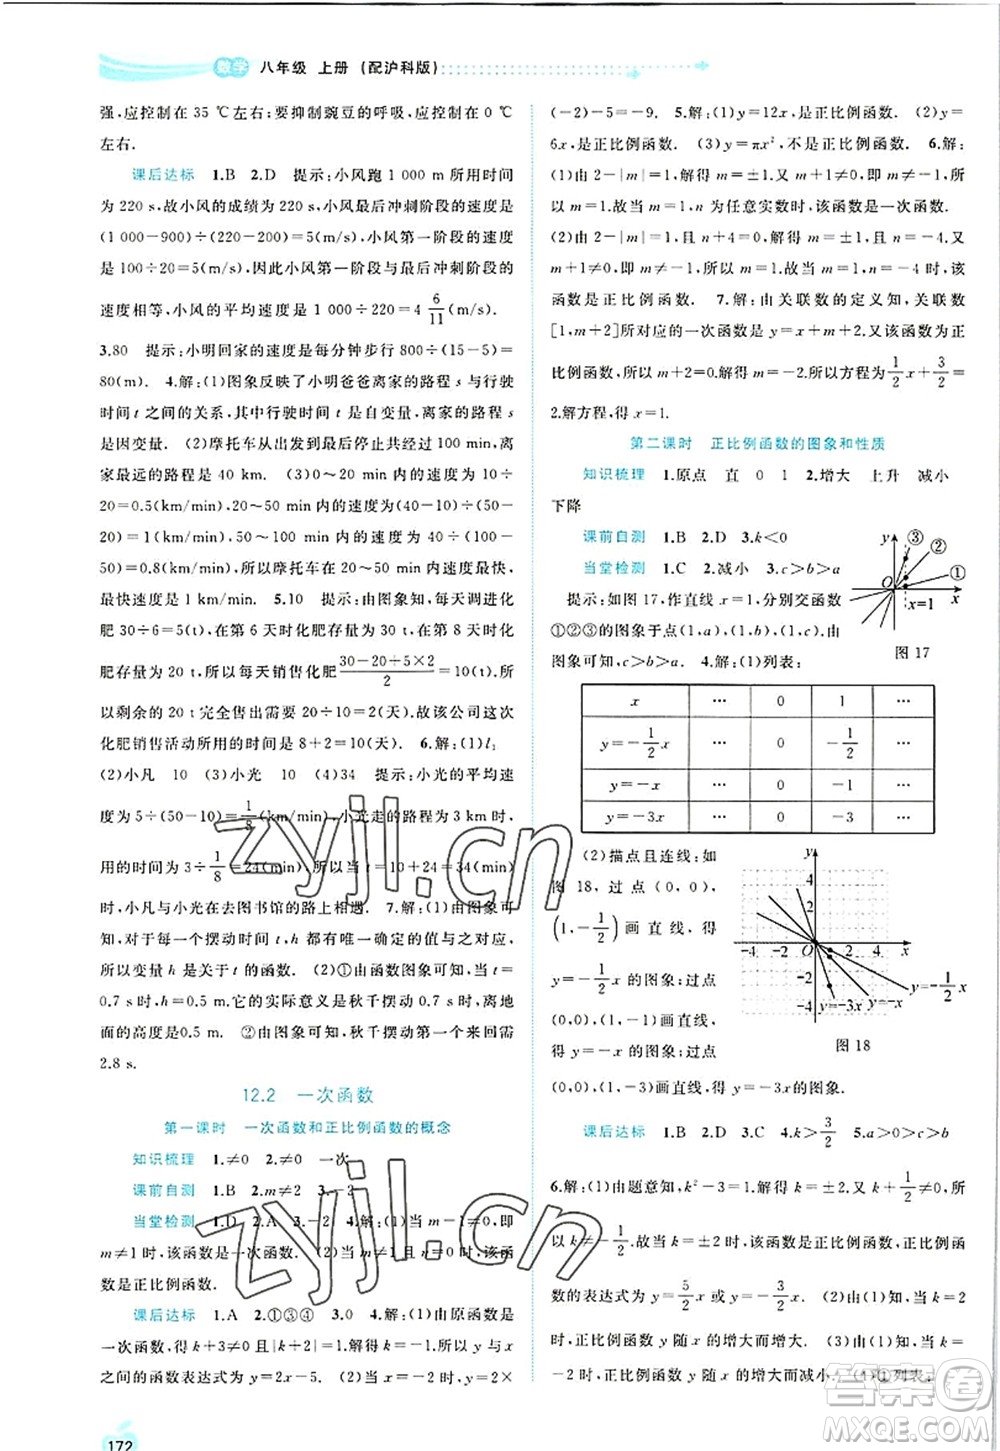 数学 八年级 上册 (配沪科版)
强,应控制在 35 ℃左右;要抑制豌豆的呼吸,应控制在 0 ℃
左右.
课后达标 1.B 2.D 提示:小风跑 1 000 m 所用时间
为 220 s,故小风的成绩为 220 s,小风最后冲刺阶段的速度是
(1 000-900)÷(220-200)=5(m/s),小风第一阶段的速度
是 100÷20=5(m/s),因此小风第一阶段与最后冲刺阶段的
速度相等,小风的平均速度是 1 000÷220=4 6/11 (m/s)
3.80 提示:小明回家的速度是每分钟步行 800÷(15-5)=
80(m). 4.解:(1)图象反映了小明爸爸离家的路程 s 与行驶
时间 t 之间的关系,其中行驶时间 t 是自变量,离家的路程 s
是因变量. (2)摩托车从出发到最后停止共经过了 100 min,
离家最远的路程是 40 km. (3)0~20 min 的速度是 10÷
20=0.5(km/min),20~50 min 的速度是(40-10)÷(50-
20)=1(km/min),50~100 min 的速度是 40÷(100-
50)=0.8(km/min),所以摩托车在 20~50 min 的速度最快,
最快速度是 1 km/min. 5.10 提示:由图象知,每天销售化
肥 30÷6=5(t),在第 6 天时化肥存量为 30 t,在第 8 天时化
肥存量为 20 t,所以每天销售化肥 (30-20+5×2)/2=10(t),所
以剩余的 20 t 完全售出需要 20÷10=2(天).故该公司这次
化肥销售活动所用的时间是 8+2=10(天). 6.解:(1)l₂
(2)小凡 10 (3)小光 10 (4)34 提示:小光的平均速
度为 5÷(50-10)=1/8(km/min),小光走的路程为 3 km 时,
用的时间为 3÷1/8=24(min),所以当 t=10+24=34(min)
时,小凡与小光在去图书馆的路上相遇. 7.解:(1)由图象可
知,对于每一个摆动时间 t,h 都有唯一确定的值与之对应,
所以变量 h 是关于 t 的函数. (2)①由函数图象可知,当 t=
0.7 s时,h=0.5 m.它的实际意义是秋千摆动 0.7 s时,离地
面的高度是0.5 m. ②由图象可知,秋千摆动第一个来回需
2.8 s.
12.2 一次函数
第一课时 一次函数和正比例函数的概念
知识梳理 1.≠0 2.≠0 一次
课前自测 1.B 2.m≠2 3.-2
当堂检测 1.D 2.A 3.-2 4.解:(1)当 m-1≠0,即
m≠1 时,该函数是一次函数. (2)当 m=1,n=0 时,该函
数是正比例函数.
课后达标 1.A 2.①③④ 3.0 4.解:(1)由原函数是
一次函数,得 k+3≠0,所以 k≠-3. (2)当 k+3=2,即 k=-1 时,y 与 x
之间的函数表达式为 y=2x-5. (3)当 x=-2 时,y=2×
(-2)-5=-9. 5.解:(1)y=12x,是正比例函数. (2)y=
6x,是正比例函数. (3)y=πx²,不是正比例函数. 6.解:
(1)由 2-|m|=1,解得 m=±1.又因为 m+1≠0,即 m≠-1,
所以 m=1.故当 m=1,n 为任意实数时,该函数是一次函数.
(2)由 2-|m|=1,解得 m=±1,由 n+4=0,解得 n=-4.又
因为 m+1≠0,所以 m=1.故当 m=1,n=-4 时,该
函数是正比例函数. 7.解:由关联数的定义知,关联数
[1,m+2]所对应的一次函数为 y=x+m+2.又该函数为正
比例函数,所以 m+2=0,解得 m=-2.所以方程为 1/2 x+3/2=
2.解方程,得 x=1.
第二课时 正比例函数的图象和性质
知识梳理 1.原点 直 0 1 2.增大 上升 减小
下降
课前自测 1.B 2.D 3.k<0
当堂检测 1.C 2.减小 3.c>b>a
提示:如图 17,作直线 x=1,分别交函数
①②③的图象于点(1,a),(1,b),(1,c).由
图象可知,c>b>a. 4.解:(1)列表:
y ③ ② ① O x x=1
图 17
x … 0 1 …
y=-1/2 x … 0 -1/2 …
y=-x … 0 -1 …
y=-3x … 0 -3 …
(2)描点且连线:如
图 18,过点(0,0),
(1,-1/2)画直线,得
y=-1/2 x 的图象;过点
(0,0),(1,-1)画直线,
得 y=-x 的图象;过点
(0,0),(1,-3)画直线,得 y=-3x 的图象.
y 4 2 O -4 -2 2 4 x -2 -4 y=-3x y=-x y=-1/2 x
图 18
课后达标 1.B 2.D 3.C 4.k>3/2 5.a>0>c>b
6.解:(1)由题意知,k²-3=1,解得 k=±2.又因为 k+1/2≠0,所
以 k≠-1/2.故 k=±2. (2)当 k=±2 时,正比例函
数的表达式为 y=5/2 x 或 y=-3/2 x. (3)当 k=2
时,正比例函数 y 随 x 的增大而增大. 当 k=
-2 时,正比例函数 y 随 x 的增大而减小. 7.解:(1)①列表:
172
zyjl.cn
zyjl.cn
答案圈
MXQE.COM